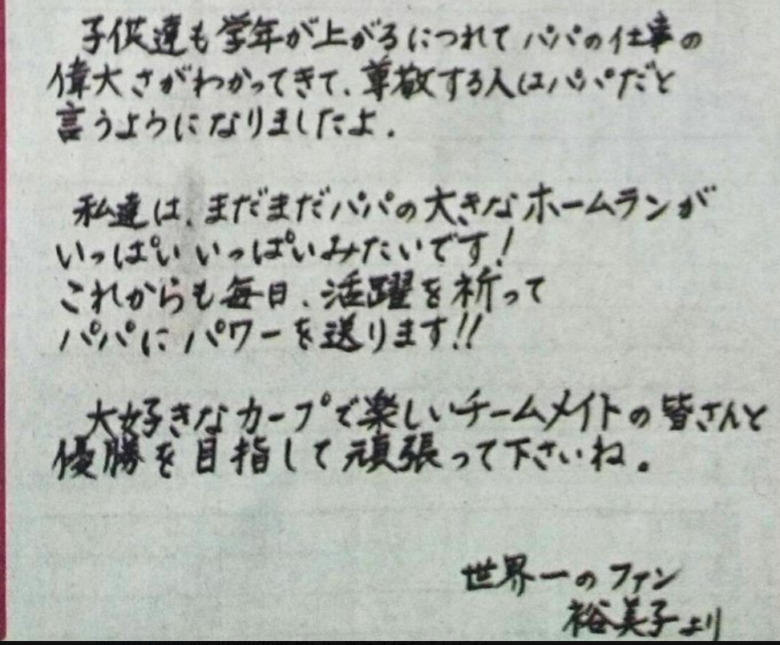 子供達も学年が上がるにつれてパパの仕事の
偉大さがわかってきて、尊敬する人はパパだと
言うようになりましたよ.
私達は、まだまだパパの大きなホームランが
いっぱいいっぱいみたいです!
これからも毎日、活躍を祈って
パパにパワーを送ります!!
大好きなカープで楽しいチームメイトの皆さんと
優勝を目指して頑張って下さいね。
世界一のファン
裕美子より